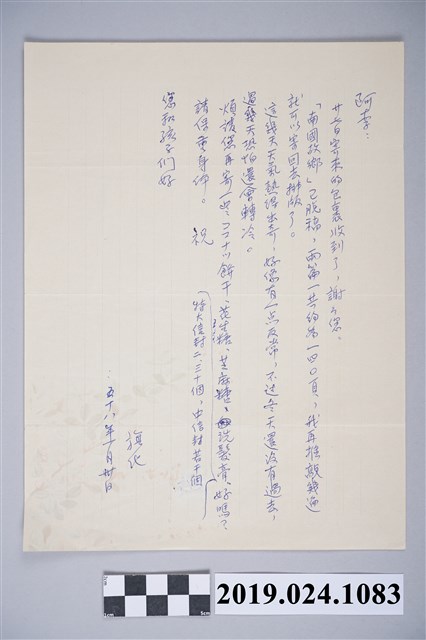 阿李：
廿五日寄來的包裹收到了，謝々您。
「南國故鄉」已脫稿，兩篇一共約為一四〇頁，我再推敲幾遍
就可以寄回去排版了。
這幾天天氣熱得出奇，好像有一点反常，不过冬天還沒有過去，
過幾天恐怕還會轉冷。
煩請您再寄一些ココナツ餅干、花生糖、芝麻糖、洗髮膏，好嗎？
特大信封二、三十個，中信封若干個
請保重身体。 祝
您和孩子们好
旗化
五十八年一月卅日
2019.024.1083
1cm
5cm